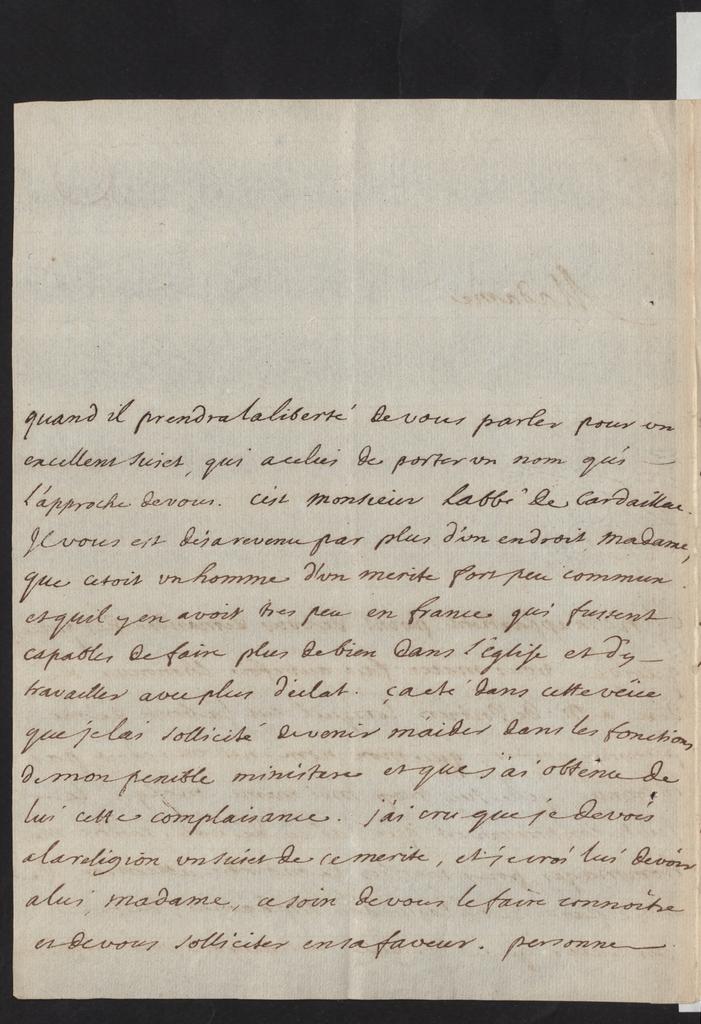 quand il prendra la liberté de vous parler pour un
excellent suiet, qui a celui de porter un nom qui
l'approche de vous. c'est monsieur l'abbé de Cardaillac.
Il vous est désia revenu par plus d'un endroit, madame,
que cetoit un homme d'un merite fort peu commun
et quil y en avoit tres peu en france qui fussent
capables de faire plus de bien dans l'Eglise et d'y
travailler avec plus d'eclat. ça eté dans cette veüe
que je lai sollicité de venir m'aider dans les fonctions
de mon penible ministere et que j'ai obtenu de
lui cette complaisance. j'ai cru que je devois
a la religion un suiet de ce merite, et je crois lui devoir
a lui, madame, ce soin de vous le faire connoître
et de vous solliciter en sa faveur. personne